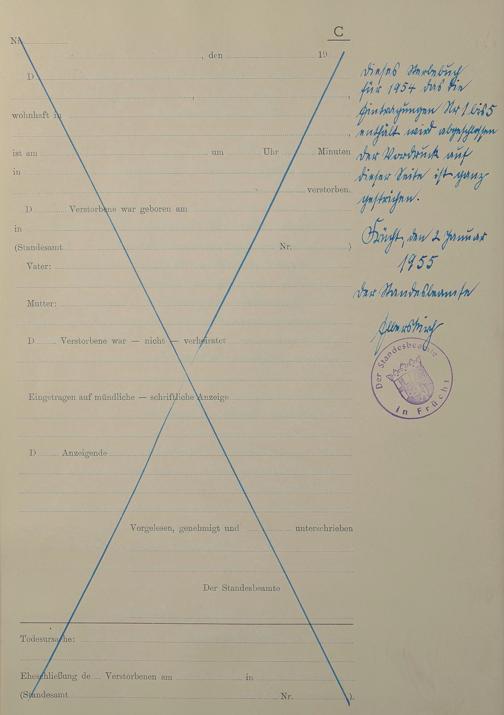 C
Nr.
, den 19
D
,
wohnhaft in
,
ist am um Uhr Minuten
in
verstorben.
D Verstorbene war geboren am
in
(Standesamt Nr. )
Vater:
Mutter:
D Verstorbene war — nicht — verheiratet
Eingetragen auf mündliche — schriftliche Anzeige
D Anzeigende
Vorgelesen, genehmigt und unterschrieben
Der Standesbeamte
Todesursache:
Eheschließung de Verstorbenen am in
(Standesamt Nr. ).
Dieses Sterbebuch
für 1954 das die
Eintragungen Nr 1 bis 5
enthält wird abgeschlossen
der Vordruck auf
dieser Seite ist ganz
gestrichen.
Frücht, den 2 Januar
1955
Der Standesbeamte
Der Standesbeamte
in Frücht